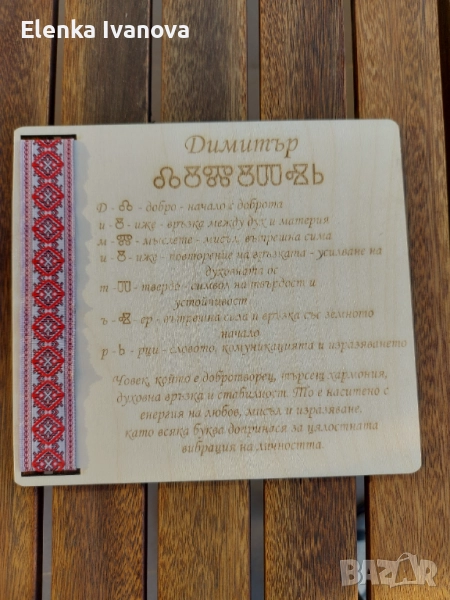 Elenka Ivanova
Димитър
Ⰴⰻⰿⰻⱅⱏⱃ
Д - Ⰴ - добро - начало с доброта
и - Ⰻ - иже - връзка между дух и материя
м - Ⰿ - мъслете - мисъл, вътрешна сила
и - Ⰻ - иже - повторение на връзката - усилване на
духовната ос
т - Ⱅ - твердо - символ на твърдост и
устойчивост
ъ - Ⱏ - ер - вътрешна сила и връзка със земното
начало
р - Ⱃ - рци - словото, комуникацията и изразяването
Човек, който е добротворец, търсещ хармония,
духовна връзка и стабилност. То е наситено с
енергия на любов, мисъл и изразяване,
като всяка буква допринася за цялостната
вибрация на личността.
BAZAR